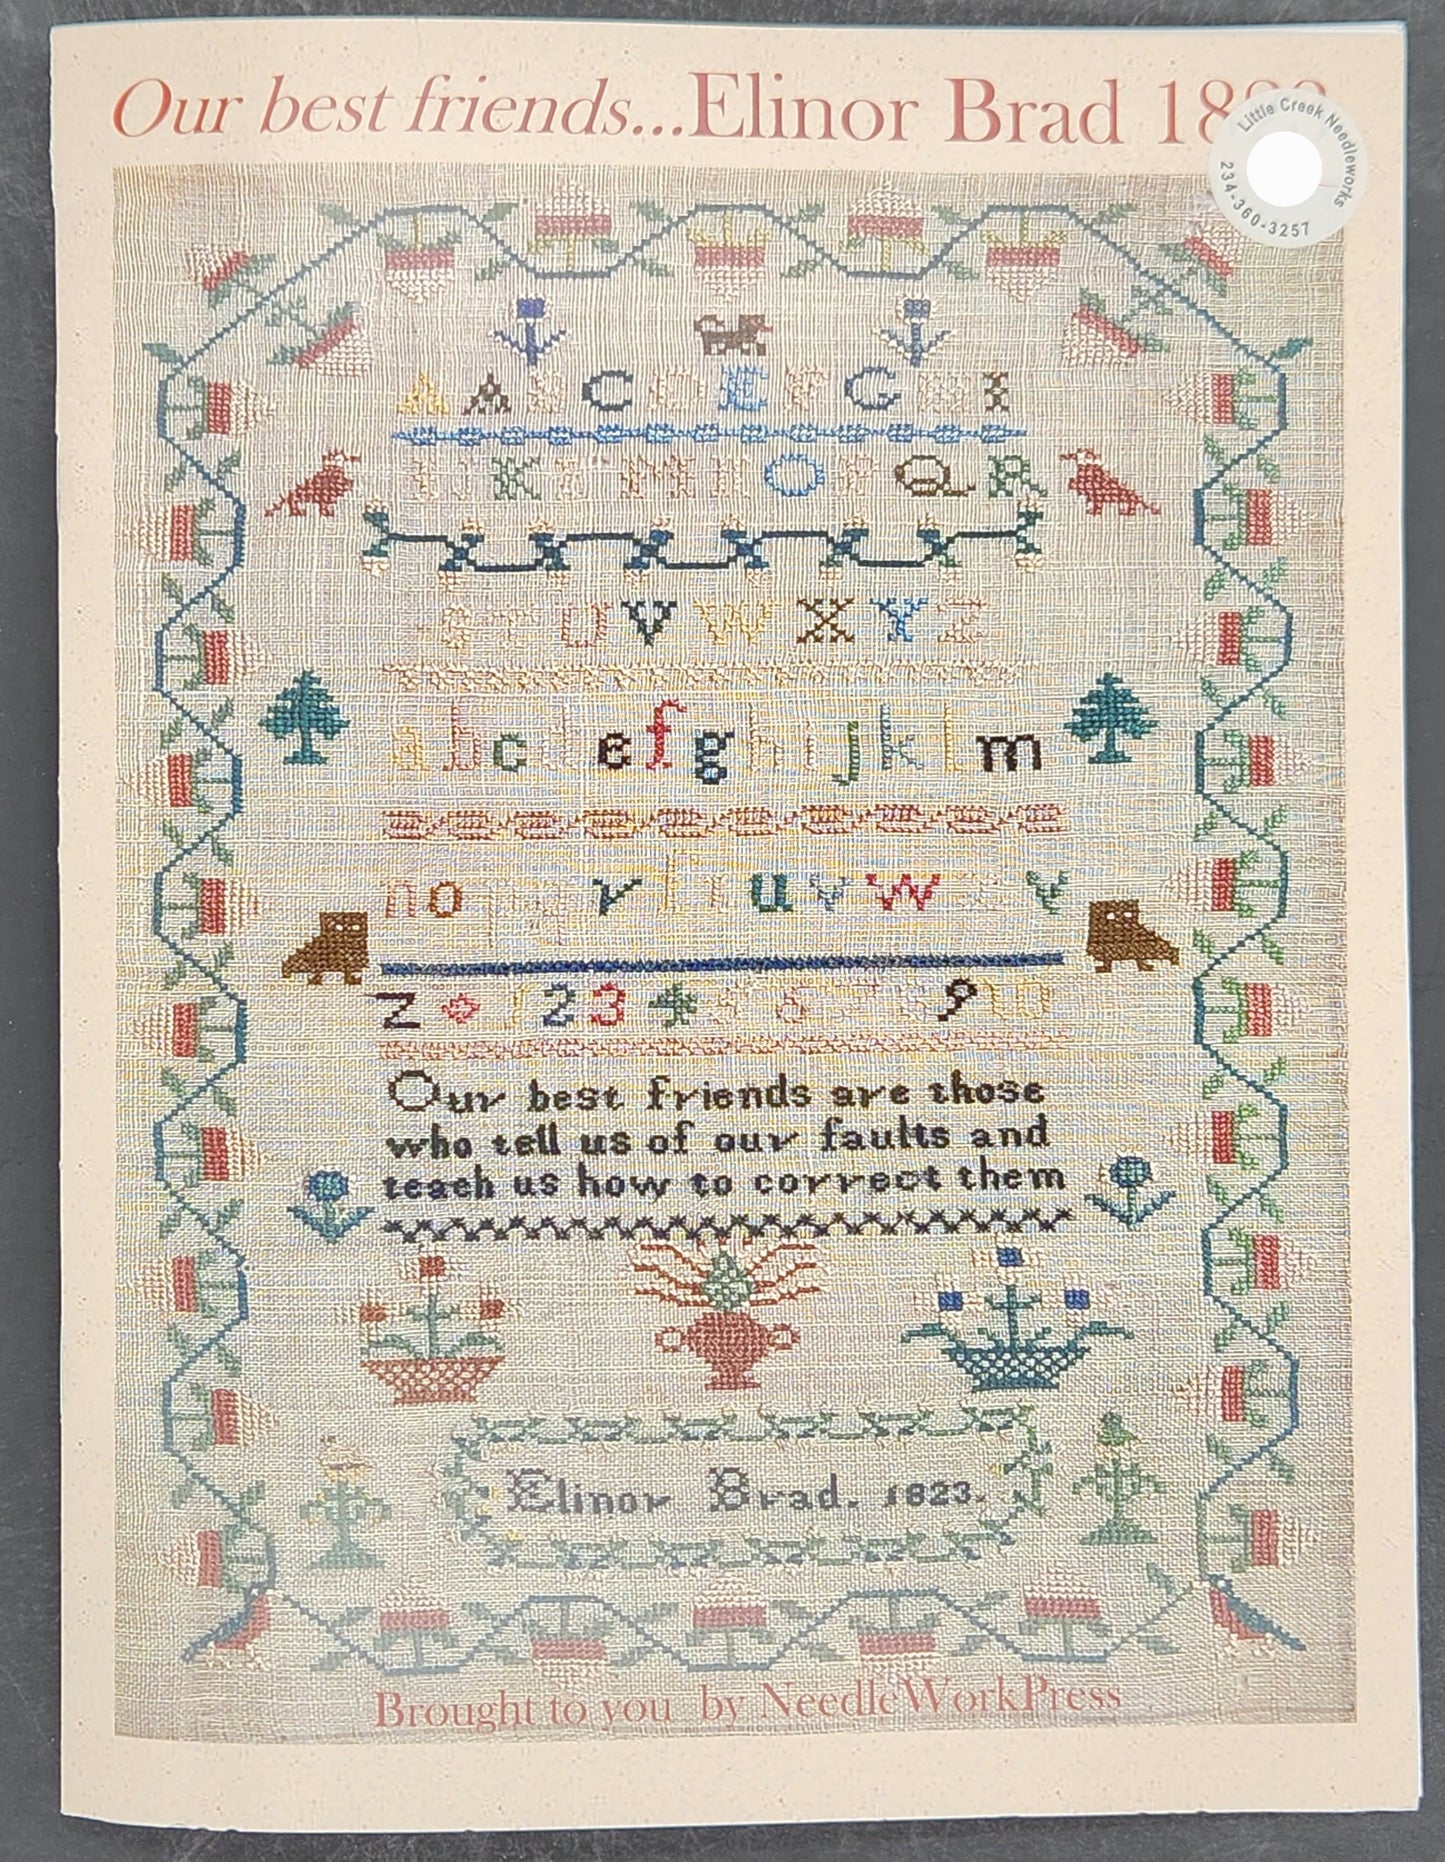 Our best friends...Elinor Brad
Little Creek Needleworks
234-360-3257
A A C O E F G H I
I J K L M N O P Q R
S T U V W X Y Z
a b c d e f g h i j k l m
n o r u v w y
z 2 3 4 9 10
Our best friends are those
who tell us of our faults and
teach us how to correct them
Elinor Brad. 1823.
Brought to you by NeedleWorkPress